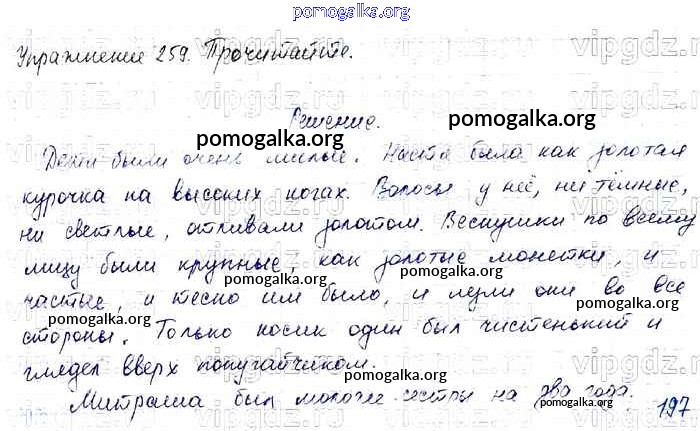 pomogalka.org
Упражнение 259. Прочитайте.
Решение.
pomogalka.org pomogalka.org
Дети были очень милые. Настя была как золотая
курочка на высоких ногах. Волосы у неё, ни тёмные,
ни светлые, отливали золотом. Веснушки по всему
лицу были крупные, как золотые монетки, и
pomogalka.org pomogalka.org
частые, и тесно им было, и лезли они во все
pomogalka.org pomogalka.org
стороны. Только носик один был чистенький и
глядел вверх попугайчиком.
pomogalka.org
Митраша был моложе сестры на два года.
pomogalka.org
197